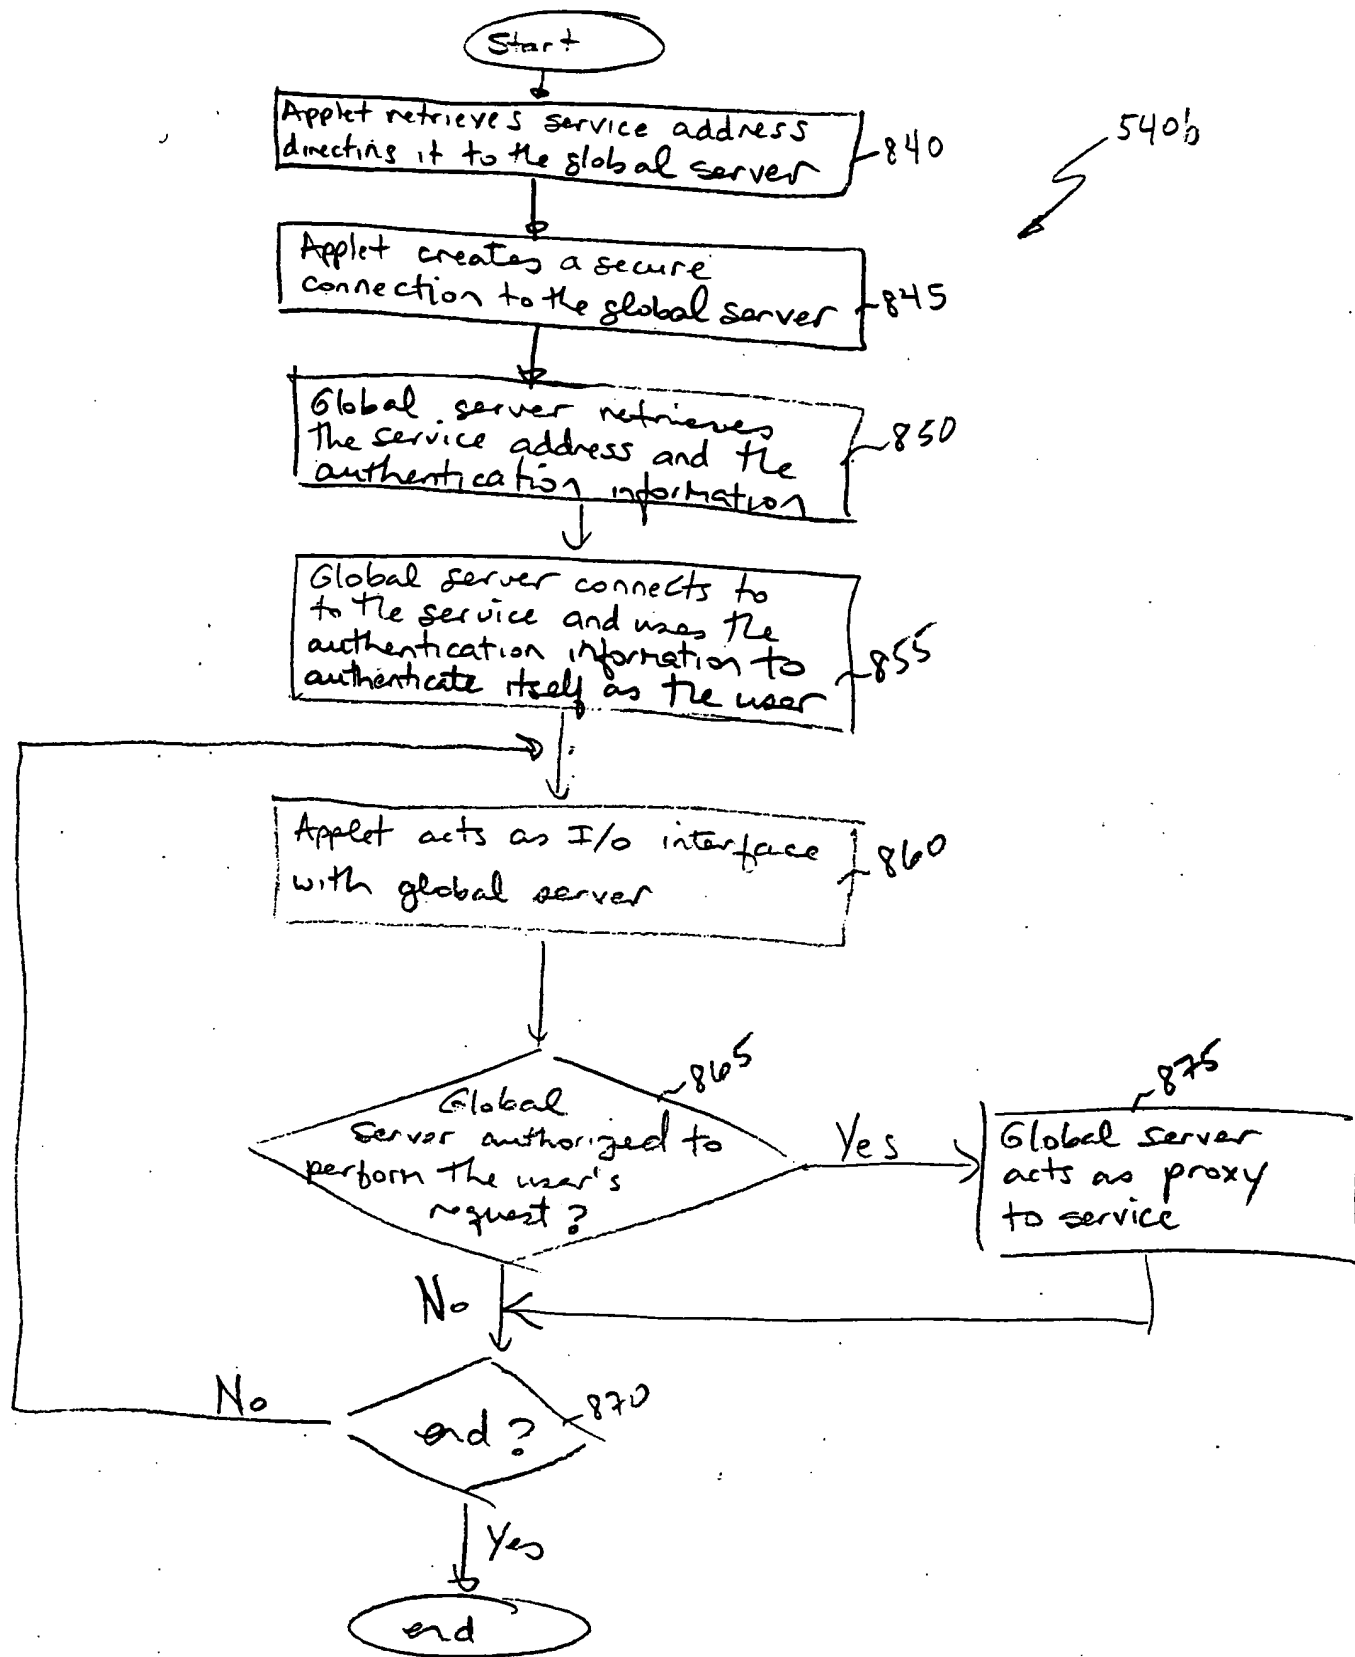 Start
Applet retrieves service address
directing it to the global server
840
540b
Applet creates a secure
connection to the global server
845
Global server retrieves
the service address and the
authentication information
850
Global server connects to
to the service and uses the
authentication information to
authenticate itself as the user
855
Applet acts as I/O interface
with global server
860
865
Global
server authorized to
perform the user's
request?
Yes
875
Global server
acts as proxy
to service
No
No
end?
870
Yes
end